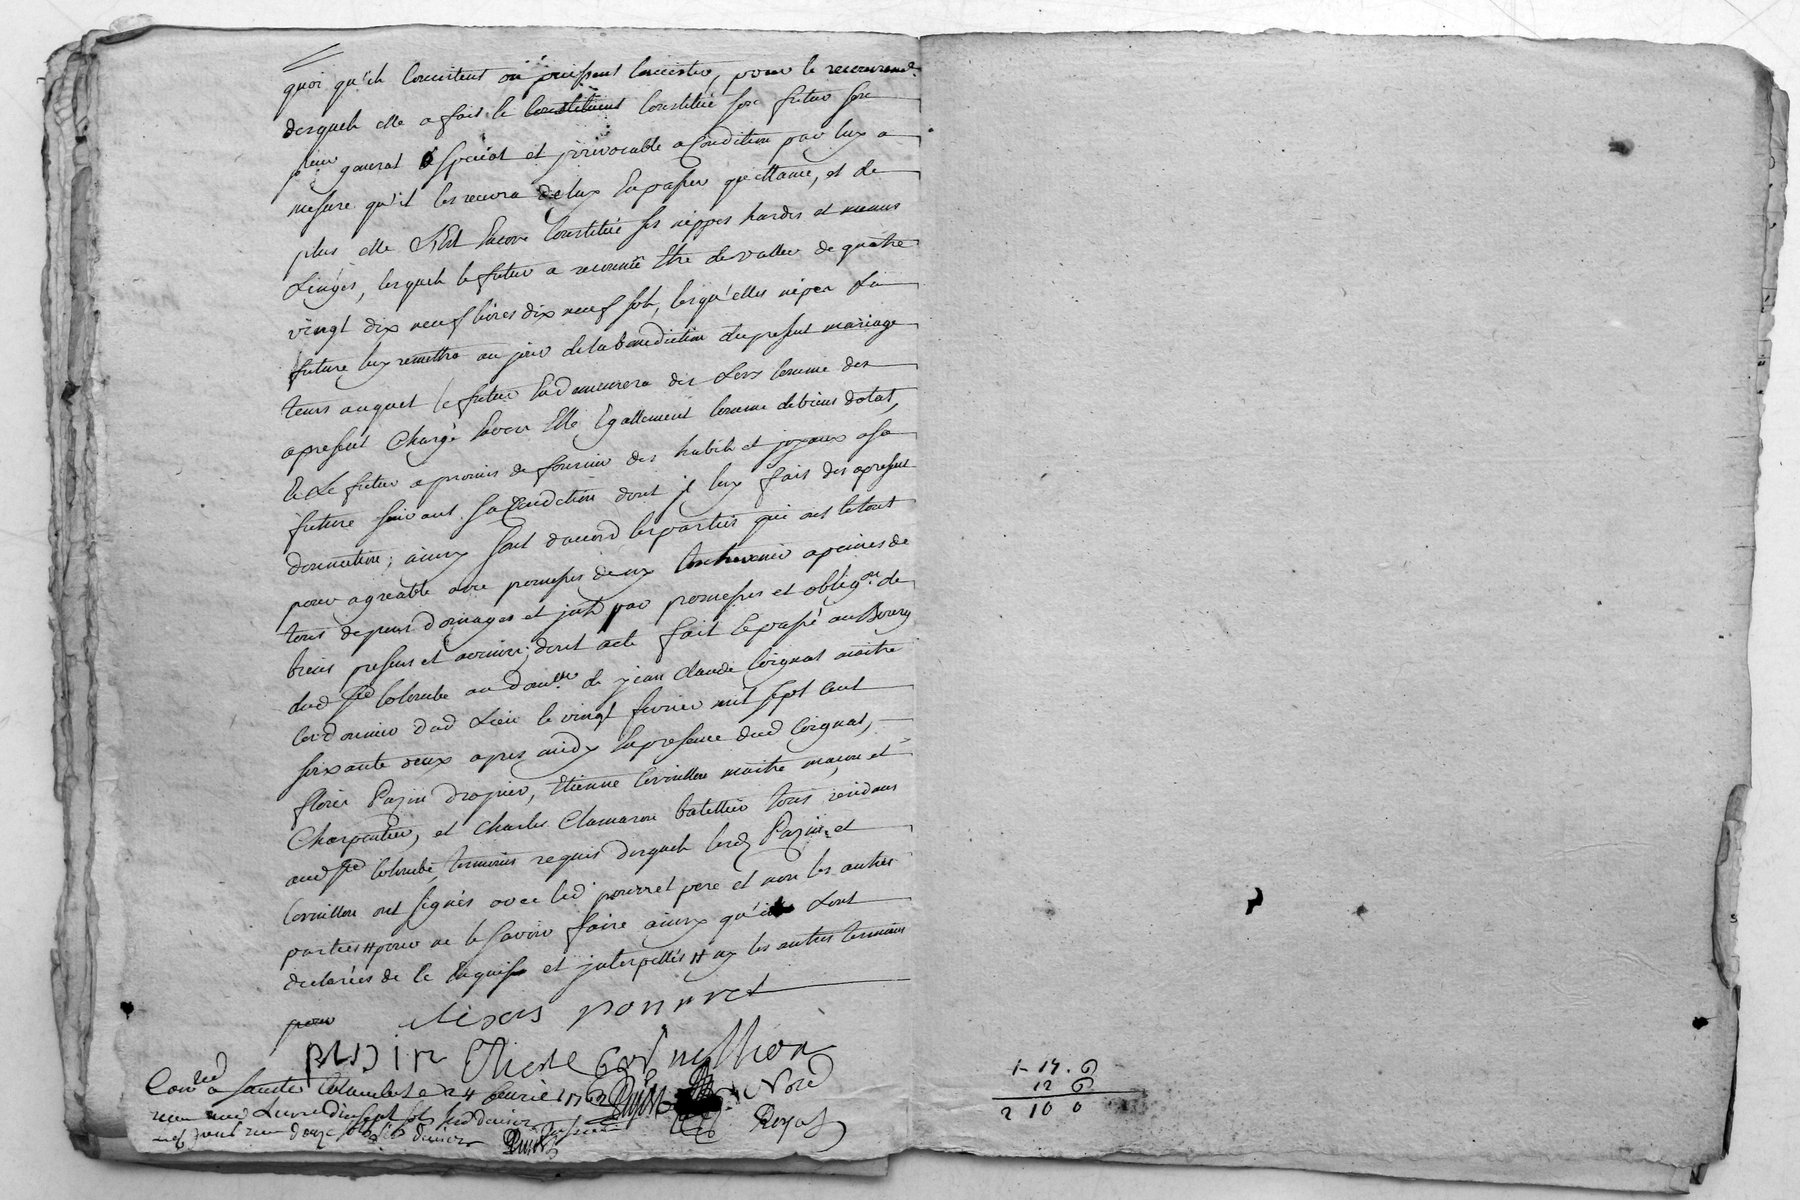 quoi qu'ils consistent ou puissent consister, pour le recouvrem.t
desquels elle a fait le constitue son futur son
p.reur general & special et jrrevocable a condition par luy a
mesure qu'il les recevra de luy en passer quittance, et de
plus elle s'est encore constitué ses nippes hardes et menus
Linges, lesquels le futur a reconnu etre de valleur de quatre
vingt dix neuf livres dix neuf sols, lesqu'elles nipes La
future luy remettra au jour de la benediction du present mariage
tems auquel le futur en demeurera des Lors comme des
apresent chargé envers Elle Egallement comme de biens dotal,
Et Le futur a promis de fournir des habits et joyaux a sa
future suivant sa condition dont jl luy fait des apresent
donnation; ainsy sont d'accord les parties qui ont le tout
pour agreable avec promesses de ny contrevenir a peines de
tous depens domages et jnts par promesses et oblig.on de
biens presens et avenir; dont acte fait et passé au Bourg
dud S.te Colombe au domille de jean claude Coignat maitre
Cordonnier dud Lieu le vingt fevrier mil sept cent
soixante deux apres midy En presence dud Coignat,
fleury Pazin drapier, Etienne Cornillon maitre maçon et
Charpentier, et charles Clamaron batellier tous residans
aud S.te Colombe, temoins requis desquels lesd Pazin et
Cornillon ont signés avec led pourret pere et non les autres
parties # pour ne le savoir faire ainsy qu'ils L'ont
declarées de ce enquis et jnterpellés # ny les autres temoins
pour
pourret
pasin Etiene Cornillion
Con.lé a sainte Colombe le 24 fevrier 1762
Noté
Royal
1 - 17 . 6
12 6
2 10 0